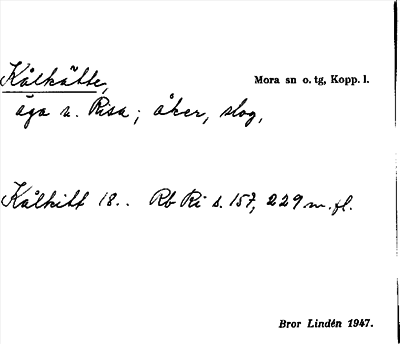 Kålkätte, Mora sn o. tg, Kopp. l.
äga v. Risa; åker, slog,
Kålkitt 18.. Rb Ri s. 157, 229 m. fl.
Bror Lindén 1947.